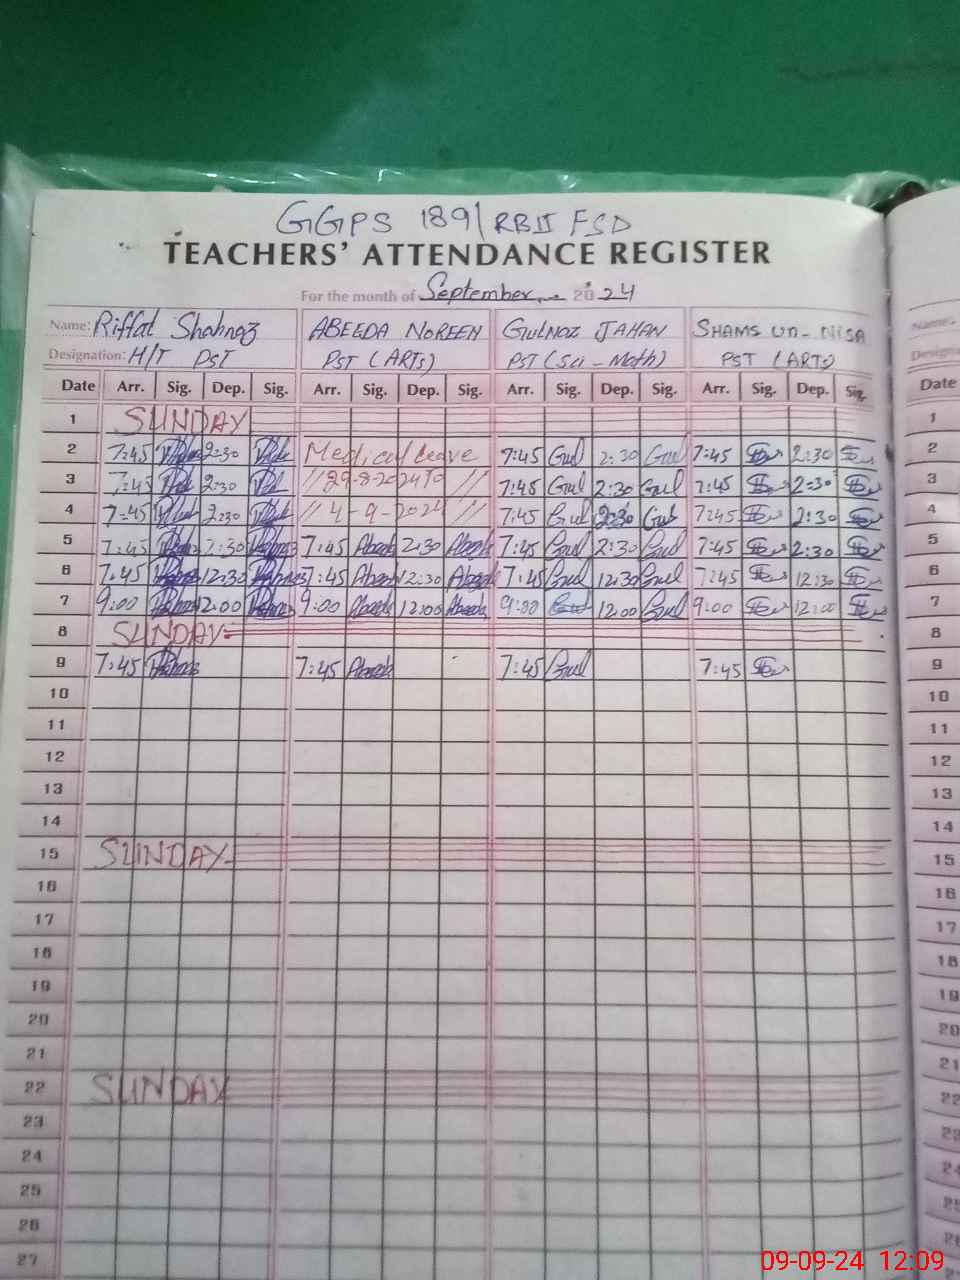 GGPS 189/RBII FSD
TEACHERS' ATTENDANCE REGISTER
For the month of September 2024
Name: Riffat Shahnaz ABEEDA NOREEN GULNAZ JAHAN SHAMS UN-NISA Name:
Designation: H/T PST PST (ARTS) PST (Sci-Math) PST (ARTS)
Date Arr. Sig. Dep. Sig. Arr. Sig. Dep. Sig. Arr. Sig. Dep. Sig. Arr. Sig. Dep. Sig. Date
1 SUNDAY 1
2 7:45 2:30 Medical leave 7:45 Gul 2:30 Gul 7:45 2:30 2
3 7:45 2:30 // 29-8-2024 To // 7:45 Gul 2:30 Gul 7:45 2:30 3
4 7:45 2:30 // 4-9-2024 // 7:45 Gul 2:30 Gul 7:45 2:30 4
5 7:45 2:30 7:45 Abeeda 2:30 Abeeda 7:45 Gul 2:30 Gul 7:45 2:30 5
6 7:45 12:30 7:45 Abeeda 12:30 Abeeda 7:45 Gul 12:30 Gul 7:45 12:30 6
7 9:00 12:00 9:00 Abeeda 12:00 Abeeda 9:00 Gul 12:00 Gul 9:00 12:00 7
8 SUNDAY 8
9 7:45 7:45 Abeeda 7:45 Gul 7:45 9
10 10
11 11
12 12
13 13
14 14
15 SUNDAY 15
16 16
17 17
18 18
19 19
20 20
21 21
22 SUNDAY 22
23 23
24 24
25 25
26 26
27
09-09-24 12:09